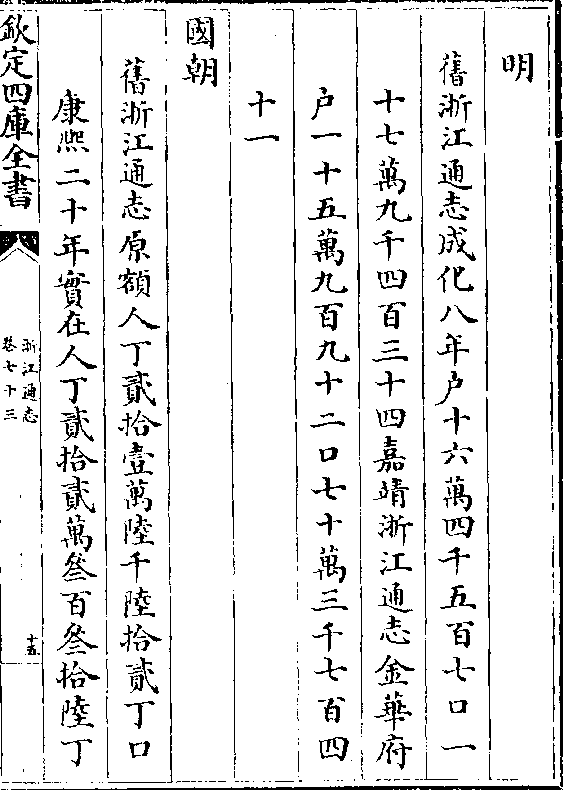 明
舊浙江通志成化八年户十六萬四千五百七口一
十七萬九千四百三十四嘉靖浙江通志金華府
户一十五萬九百九十二口七十萬三千七百四
十一
國朝
舊浙江通志原額人丁貳拾壹萬陸千陸拾貳丁口
康熙二十年實在人丁貳拾貳萬叁百叁拾陸丁
欽定四庫全書
浙江通志
卷七十三
十五